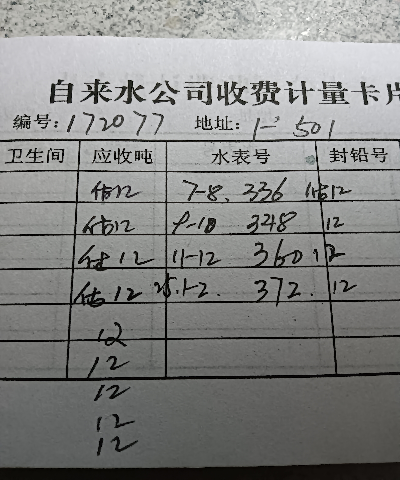 自来水公司收费计量卡片
编号:172077 地址:1-501
卫生间 应收吨 水表号 封铅号
估12 7-8. 336 估12
估12 9-10 348 12
估12 11-12 360 12
估12 25.1-2. 372. 12
12
12
12
12
12